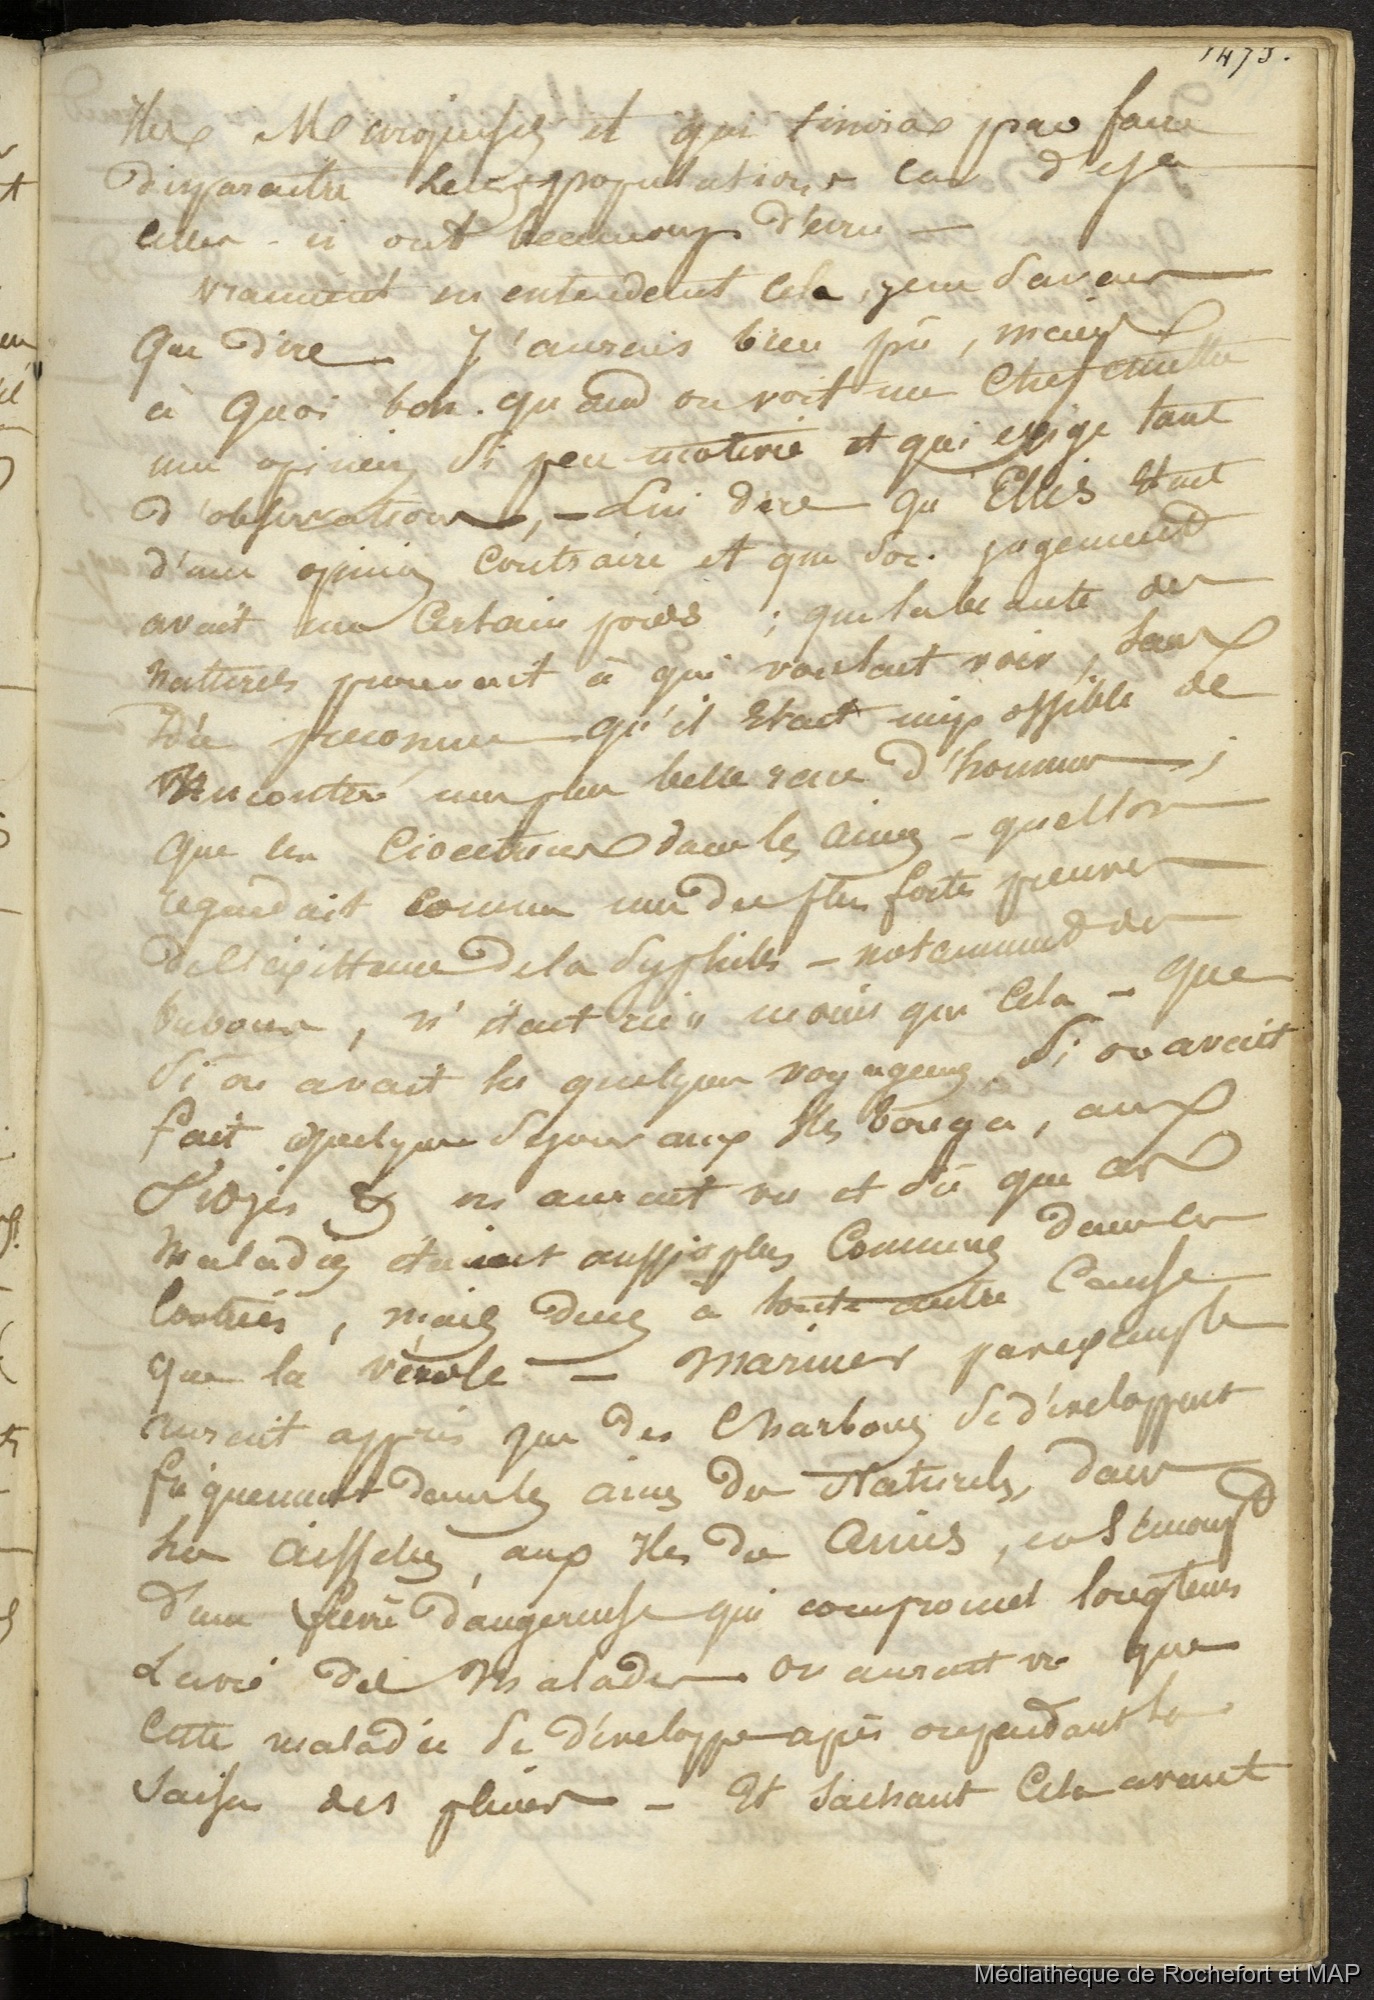 1473.
Iles Marquises et qui finira par faire
disparaitre les populations car déja
celles-ci ont beaucoup d'écru —
vraiment en entendant cela, je ne savais
que dire J'aurais bien pû, mais
à quoi bon. quand on voit un Chef emettre
une opinion si peu motivé et qui exige tant
d'observations, — Lui dire qu'Ellis était
d'une opinion contraire et que son jugement
avait un certain poids ; que la beauté des
naturels prouvait à qui voulait voir, sans
idée preconnue qu'il était impossible de
rencontré une plus belle race d'hommes ;
que les Cicatrices dans les aines — qu'elles on
regardait comme une des plus fortes preuves
de l'éxistence de la Syphilis — notamment des
bubons, n'était rien moins que cela — que
si on avait lu quelques voyageurs, si on avait
fait quelque séjour aux Iles Tonga, aux
Fidjis & on aurait vu et sû que ces
maladies étaient aussi plus communes dans ces
contrées, mais dues à toute autre cause
que la vérole — Mariner par exemple
aurait appris que des Charbons se développent
fréquemment dans les aines des Naturels, dans
les aisselles, aux Iles des Amis,
d'une fièvre dangereuse qui compromet longtems
la vie des malades on aurait vu que
cette maladie se développe après ou pendant la
saison des pluies — Et sachant cela avant
Médiathèque de Rochefort et MAP